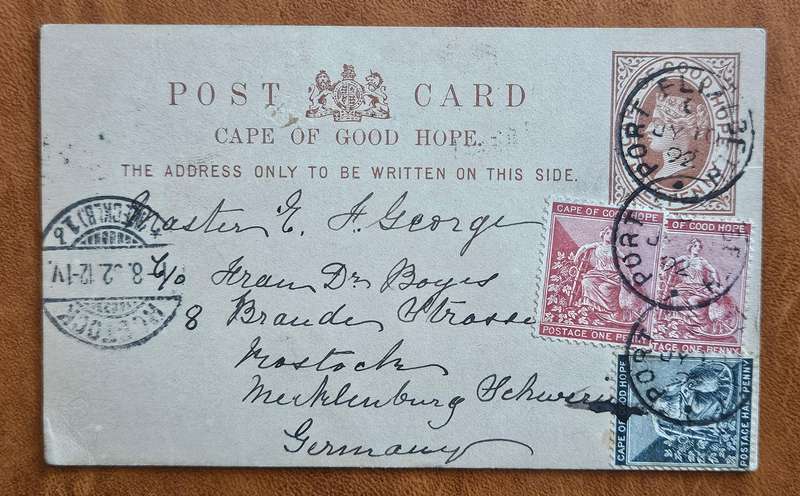 POST CARD
CAPE OF GOOD HOPE.
THE ADDRESS ONLY TO BE WRITTEN ON THIS SIDE.
Master E. H. George
c/o Frau Dr Boyes
8 Brandes Strasse
Rostock
Mecklenburg Schwerin
Germany
GOOD HOPE
PORT
JY
02
CAPE OF GOOD HOPE
POSTAGE ONE PENNY
OF GOOD HOPE
POSTAGE ONE PENNY
PORT
02
CAPE OF GOOD HOPE
POSTAGE HALFPENNY
PORT
JY
8.02.12-1V.
ROSTOCK